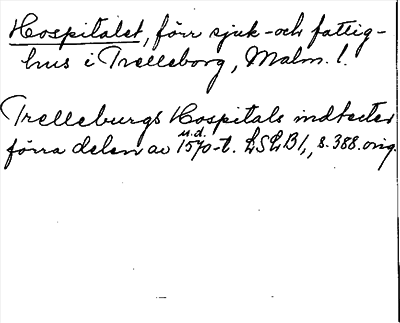 Hospitalet, förr sjuk- och fattig-
hus i Trelleborg, Malm. l.
Trelleburgs Hospitals indtecter
u.d.
förra delen av 1570-t. LSLB 1, s. 388. orig.